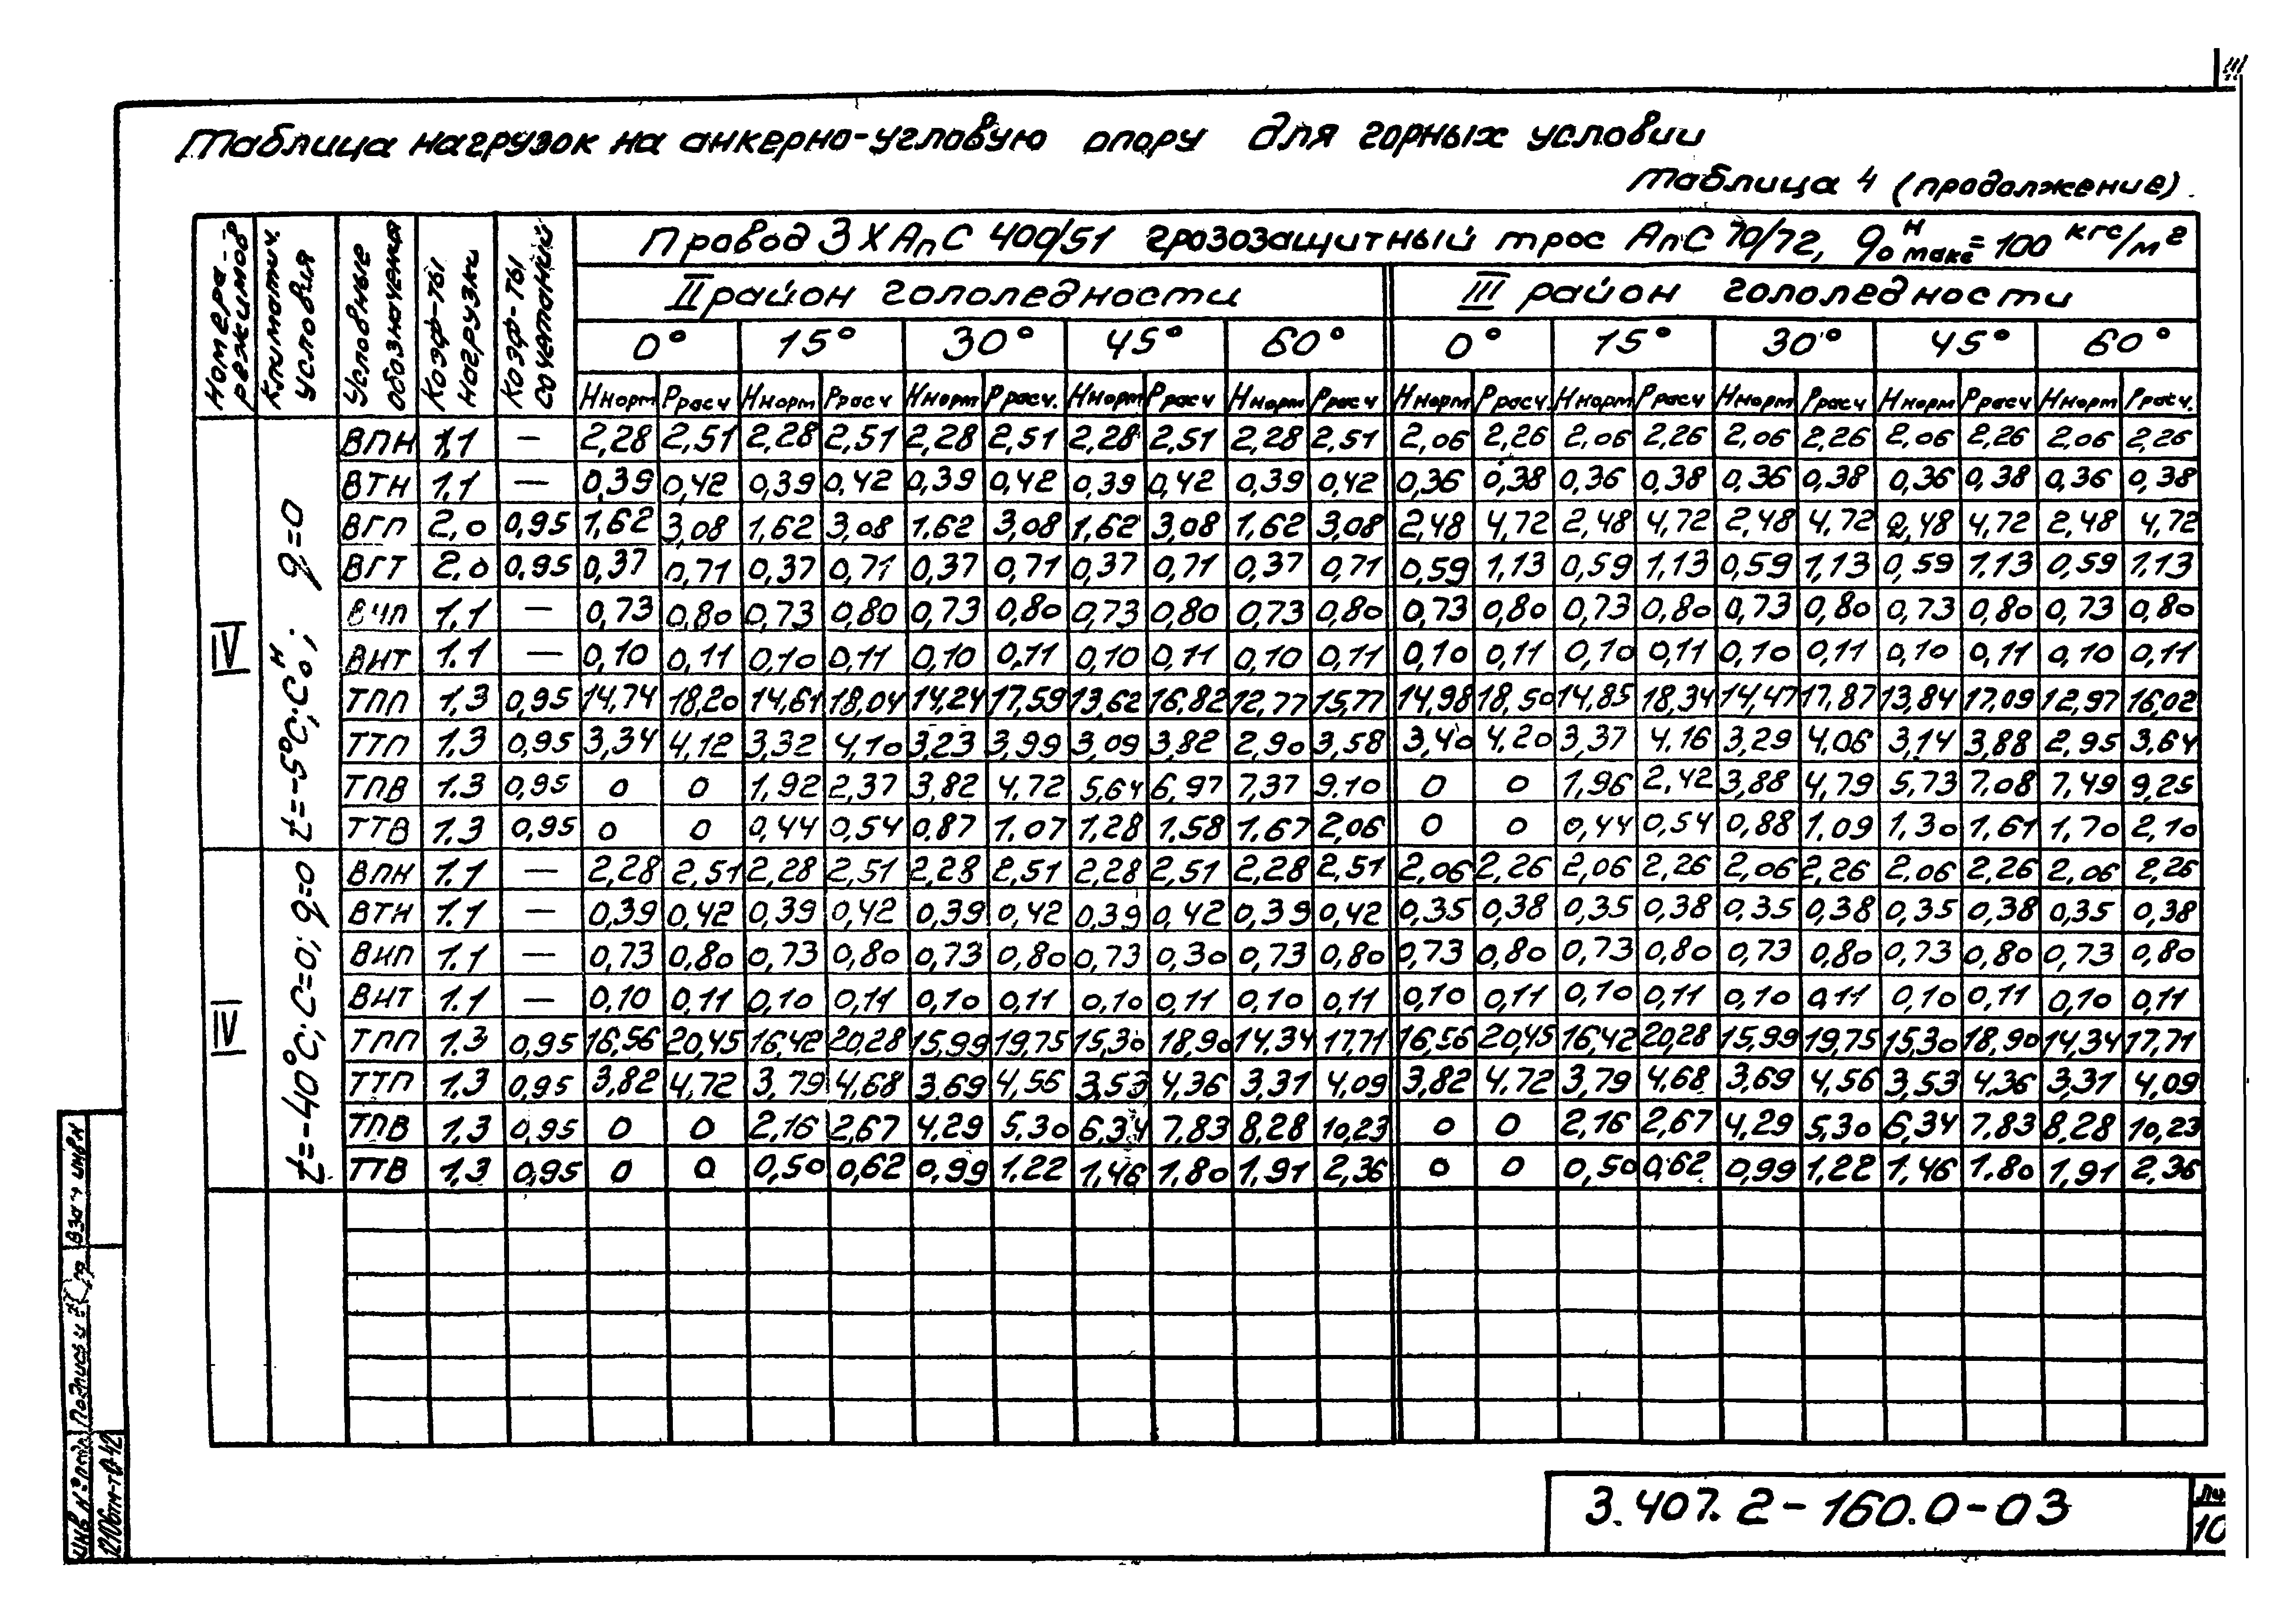 Таблица нагрузок на анкерно-угловую опору для горных условий
Таблица 4 (продолжение).
Номера режимов | Климатич. условия | Условные обозначения | Коэф-ты нагрузки | Коэф-ты сочетаний | Провод 3 х АпС 400/51 грозозащитный трос АпС 70/72, q₀ᴴ макс = 100 кгс/м²
II район гололедности | III район гололедности
0° | 15° | 30° | 45° | 60° | 0° | 15° | 30° | 45° | 60°
Ннорм | Ррасч | Ннорм | Ррасч | Ннорм | Ррасч. | Ннорм | Ррасч | Ннорм | Ррасч | Ннорм | Ррасч. | Ннорм | Ррасч | Ннорм | Ррасч | Ннорм | Ррасч | Ннорм | Ррасч.
IV | t=-5°C; Cᴴ₀; q=0
ВПН | 1.1 | — | 2,28 | 2,51 | 2,28 | 2,51 | 2,28 | 2,51 | 2,28 | 2,51 | 2,28 | 2,51 | 2,06 | 2,26 | 2,06 | 2,26 | 2,06 | 2,26 | 2,06 | 2,26 | 2,06 | 2,26
ВТН | 1.1 | — | 0,39 | 0,42 | 0,39 | 0,42 | 0,39 | 0,42 | 0,39 | 0,42 | 0,39 | 0,42 | 0,36 | 0,38 | 0,36 | 0,38 | 0,36 | 0,38 | 0,36 | 0,38 | 0,36 | 0,38
ВГП | 2,0 | 0,95 | 1,62 | 3,08 | 1,62 | 3,08 | 1,62 | 3,08 | 1,62 | 3,08 | 1,62 | 3,08 | 2,48 | 4,72 | 2,48 | 4,72 | 2,48 | 4,72 | 2,48 | 4,72 | 2,48 | 4,72
ВГТ | 2.0 | 0,95 | 0,37 | 0,71 | 0,37 | 0,71 | 0,37 | 0,71 | 0,37 | 0,71 | 0,37 | 0,71 | 0,59 | 1,13 | 0,59 | 1,13 | 0,59 | 1,13 | 0,59 | 1.13 | 0,59 | 1,13
ВИП | 1.1 | — | 0,73 | 0,80 | 0,73 | 0,80 | 0,73 | 0,80 | 0,73 | 0,80 | 0,73 | 0,80 | 0,73 | 0,80 | 0,73 | 0,80 | 0,73 | 0,80 | 0,73 | 0,80 | 0,73 | 0,80
ВИТ | 1.1 | — | 0,10 | 0,11 | 0,10 | 0,11 | 0,10 | 0,11 | 0,10 | 0,11 | 0,10 | 0,11 | 0,10 | 0,11 | 0,10 | 0,11 | 0,10 | 0,11 | 0,10 | 0,11 | 0,10 | 0,11
ТПП | 1,3 | 0,95 | 14,74 | 18,20 | 14,61 | 18,04 | 14,24 | 17,59 | 13,62 | 16,82 | 12,77 | 15,77 | 14,98 | 18,50 | 14,85 | 18,34 | 14,47 | 17,87 | 13,84 | 17,09 | 12,97 | 16,02
ТТП | 1.3 | 0,95 | 3,34 | 4,12 | 3,32 | 4,10 | 3,23 | 3,99 | 3,09 | 3,82 | 2,90 | 3,58 | 3,40 | 4,20 | 3,37 | 4,16 | 3,29 | 4,06 | 3,14 | 3,88 | 2,95 | 3,64
ТПВ | 1.3 | 0,95 | 0 | 0 | 1,92 | 2,37 | 3,82 | 4,72 | 5,64 | 6,97 | 7,37 | 9,10 | 0 | 0 | 1,96 | 2,42 | 3,88 | 4,79 | 5,73 | 7,08 | 7,49 | 9,25
ТТВ | 1.3 | 0,95 | 0 | 0 | 0,44 | 0,54 | 0,87 | 1,07 | 1,28 | 1.58 | 1,67 | 2,06 | 0 | 0 | 0,44 | 0,54 | 0,88 | 1,09 | 1,30 | 1,61 | 1,70 | 2,10
IV | t=-40°C; C=0; q=0
ВПН | 1.1 | — | 2,28 | 2,51 | 2,28 | 2,51 | 2,28 | 2,51 | 2,28 | 2,51 | 2,28 | 2,51 | 2,06 | 2,26 | 2,06 | 2,26 | 2,06 | 2,26 | 2,06 | 2,26 | 2,06 | 2,26
ВТН | 1.1 | — | 0,39 | 0,42 | 0,39 | 0,42 | 0,39 | 0,42 | 0,39 | 0,42 | 0,39 | 0,42 | 0,35 | 0,38 | 0,35 | 0,38 | 0,35 | 0,38 | 0,35 | 0,38 | 0,35 | 0,38
ВИП | 1.1 | — | 0,73 | 0,80 | 0,73 | 0,80 | 0,73 | 0,80 | 0,73 | 0,30 | 0,73 | 0,80 | 0,73 | 0,80 | 0,73 | 0,80 | 0,73 | 0,80 | 0,73 | 0,80 | 0,73 | 0,80
ВИТ | 1.1 | — | 0,10 | 0,11 | 0,10 | 0,11 | 0,10 | 0,11 | 0,10 | 0,11 | 0,10 | 0,11 | 0,10 | 0,11 | 0,10 | 0,11 | 0,10 | 0,11 | 0,10 | 0,11 | 0,10 | 0,11
ТПП | 1.3 | 0,95 | 16,56 | 20,45 | 16,42 | 20,28 | 15,99 | 19,75 | 15,30 | 18,90 | 14,34 | 17,71 | 16,56 | 20,45 | 16,42 | 20,28 | 15,99 | 19,75 | 15,30 | 18,90 | 14,34 | 17,71
ТТП | 1.3 | 0,95 | 3,82 | 4,72 | 3,79 | 4,68 | 3,69 | 4,56 | 3,53 | 4,36 | 3,31 | 4,09 | 3,82 | 4,72 | 3,79 | 4,68 | 3,69 | 4,56 | 3,53 | 4,36 | 3,31 | 4,09
ТПВ | 1.3 | 0,95 | 0 | 0 | 2,16 | 2,67 | 4,29 | 5,30 | 6,34 | 7,83 | 8,28 | 10,23 | 0 | 0 | 2,16 | 2,67 | 4,29 | 5,30 | 6,34 | 7,83 | 8,28 | 10,23
ТТВ | 1.3 | 0,95 | 0 | 0 | 0,50 | 0,62 | 0,99 | 1,22 | 1,46 | 1,80 | 1,91 | 2,36 | 0 | 0 | 0,50 | 0,62 | 0,99 | 1,22 | 1,46 | 1.80 | 1,91 | 2,36
Инв N° подл
Подпись и
Взам инв N
3.407.2-160.0-03
10